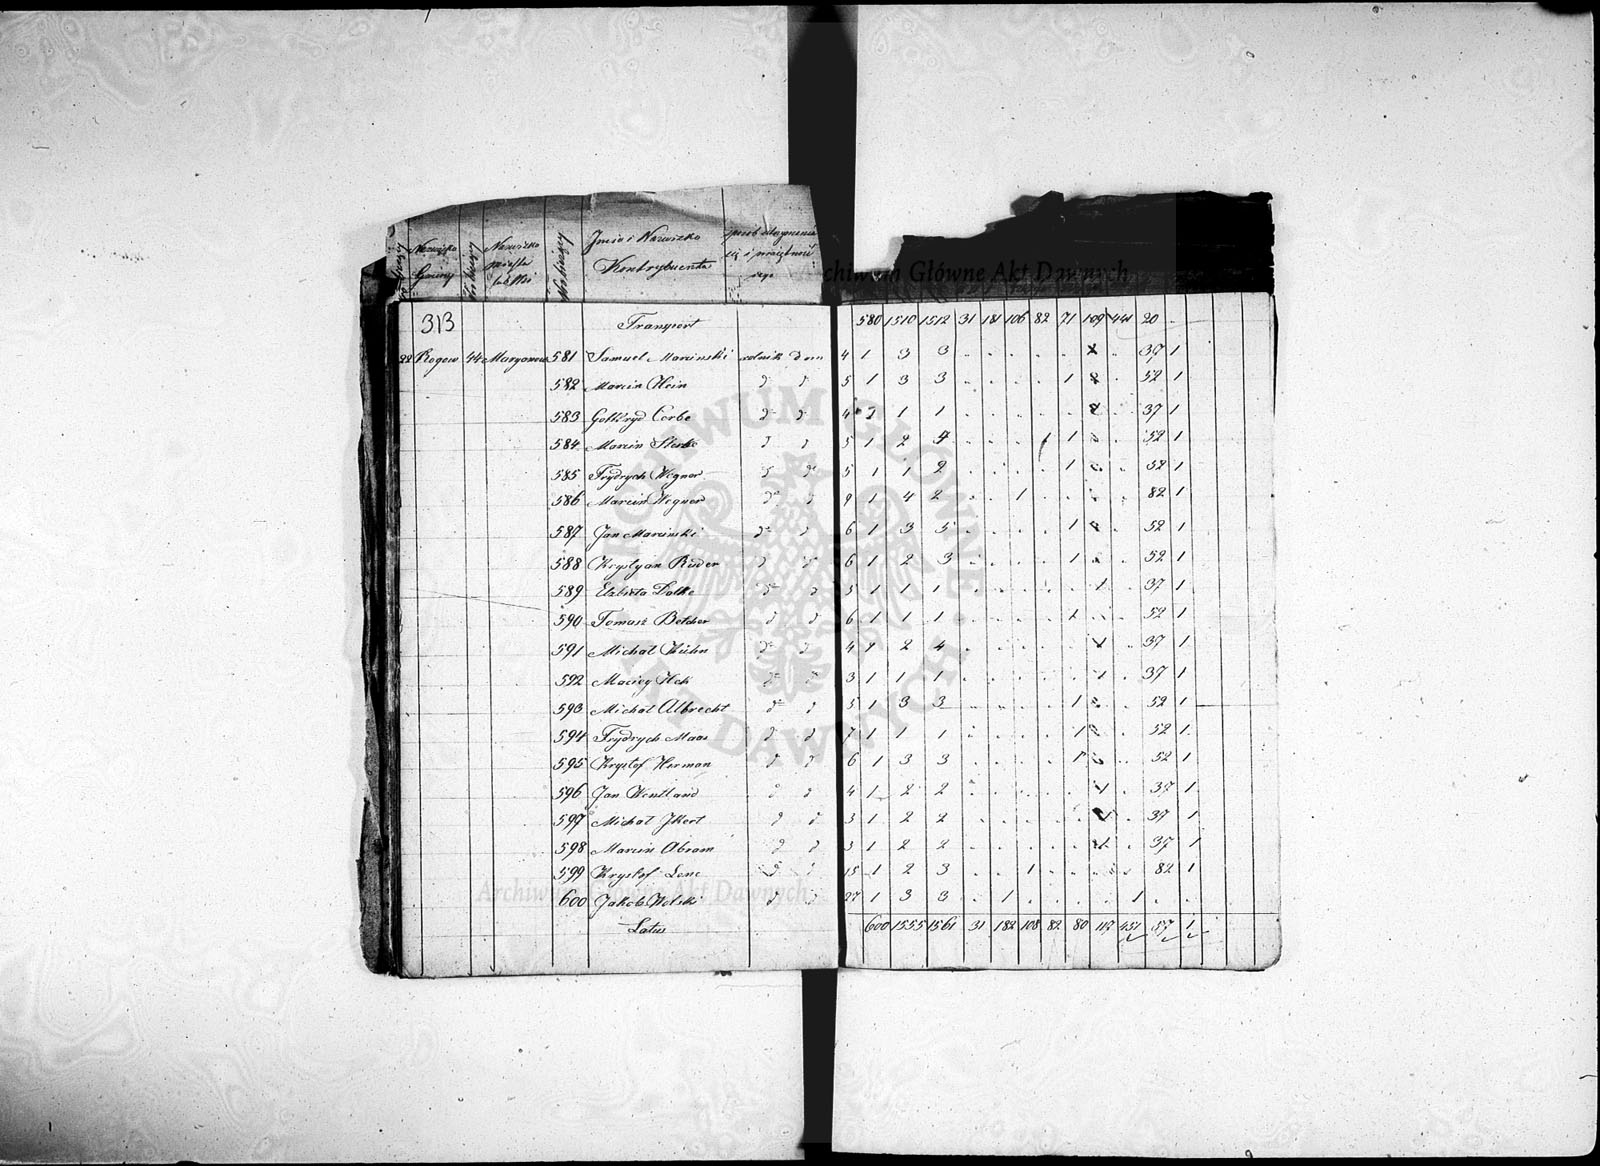 Nazwisko Gminy
Nazwisko
Imie i Nazwisko Kontrybuenta
Archiwum Główne Akt Dawnych
313 Transport 580 1510 1512 31 181 106 82 71 109 441 20
22 Rogow 44 Maryanow 581 Samuel Marcinski rolnik dom 4 1 3 3 37 1
582 Marcin Hein d d 5 1 3 3 1 52 1
583 Gottfryd Corbe d d 4 1 1 1 37 1
584 Marcin d d 5 1 2 4 1 52 1
585 Frydrych Wegner d d 5 1 1 2 1 52 1
586 Marcin Wegner d d 9 1 4 2 1 82 1
587 Jan Marcinski d d 6 1 3 5 1 52 1
588 Krystyan Rieder d d 6 1 2 3 1 52 1
589 Elzbieta Dolke d d 5 1 1 1 1 37 1
590 Tomasz Betcher d d 6 1 1 1 1 52 1
591 Michał Kühn d d 4 1 2 4 1 37 1
592 Maciey d d 3 1 1 1 1 37 1
593 Michał Albrecht d d 5 1 3 3 1 52 1
594 Frydrych Maas d d 7 1 1 1 1 52 1
595 Krystof Herman d d 6 1 3 3 1 52 1
596 Jan Wentland d d 4 1 2 2 1 37 1
597 Michał Ikert d d 3 1 2 2 1 37 1
598 Marcin Abram d d 3 1 2 2 1 37 1
599 Krystof Lenc d d 15 1 2 3 1 82 1
600 Jakob Wolski d d 27 1 3 3 1 1
Archiwum Główne Akt Dawnych
Latus 600 1555 1561 31 182 108 82 80 112 457 57 1
ARCHIWUM GŁÓWNE AKT DAWNYCH